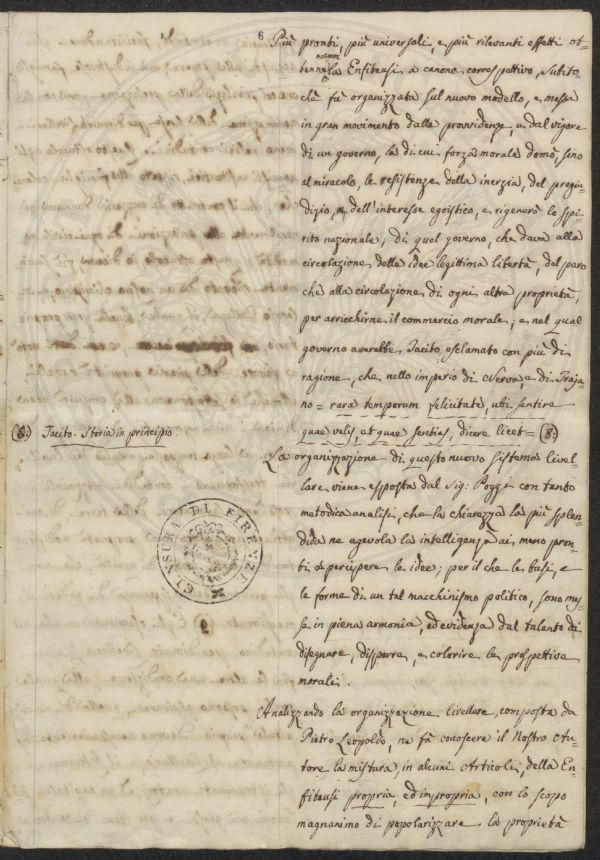 6
Più pronti, più universali, e più rilevanti effetti ot-
tenne la Enfiteusi a canone correspettivo, subito
chè fù organizzata sul nuovo modello, e messa
in gran movimento dalla provvidenza, e dal vigore
di un governo, la di cui forza morale domò, sino
al miracolo, le resistenze della inerzia, del pregiu-
dizio, e dell'interesse egoistico, e rigenerò lo spi-
rito nazionale, di quel governo, che dava alla
circolazione delle idee legittima libertà, del paro
chè alla circolazione di ogni altra proprietà,
per arricchirne il commercio morale, e nel qual
governo averebbe Tacito esclamato con più di
ragione, che nello imperio di Nerva e di Traja-
no = rara temporum felicitate, ubi sentire
quae velis, et quae sentias, dicere licet = (8:)
(8:) Tacito. Storia in principio.
La organizzazione di questo nuovo sistema livel-
lare viene esposta dal Sig: Poggi con tanto
metodica analisi, che la chiarezza la più splen-
dida ne agevola la intelligenza ai meno pron-
ti a percipere le idee; per il che le basi, e
le forme di un tal macchinismo politico, sono mes-
se in piena armonia, ed evidenza dal talento di
disegnare, disporre, e colorire le prospettive
morali.
CENSURA DI FIRENZE
Analizzando la organizzazione livellare, composta da
Pietro Leopoldo, ne fà conoscere il Nostro Au-
tore la mistura, in alcuni Articoli, della En-
fiteusi propria, ed impropria, con lo scopo
magnanimo di popolarizzare la proprietà